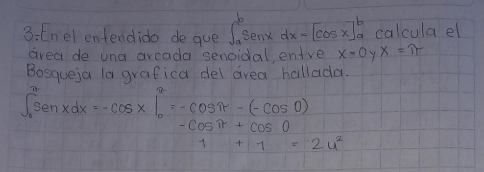 3.-En el entendido de que ∫ₐᵇ senx dx = [cos x]ₐᵇ calcula el
área de una arcada senoidal, entre x=0 y x=π
Bosqueja la grafica del área hallada.
∫₀^π sen x dx = -cos x |₀^π = -cos π - (-cos 0)
-cos π + cos 0
1 + 1 = 2 u²